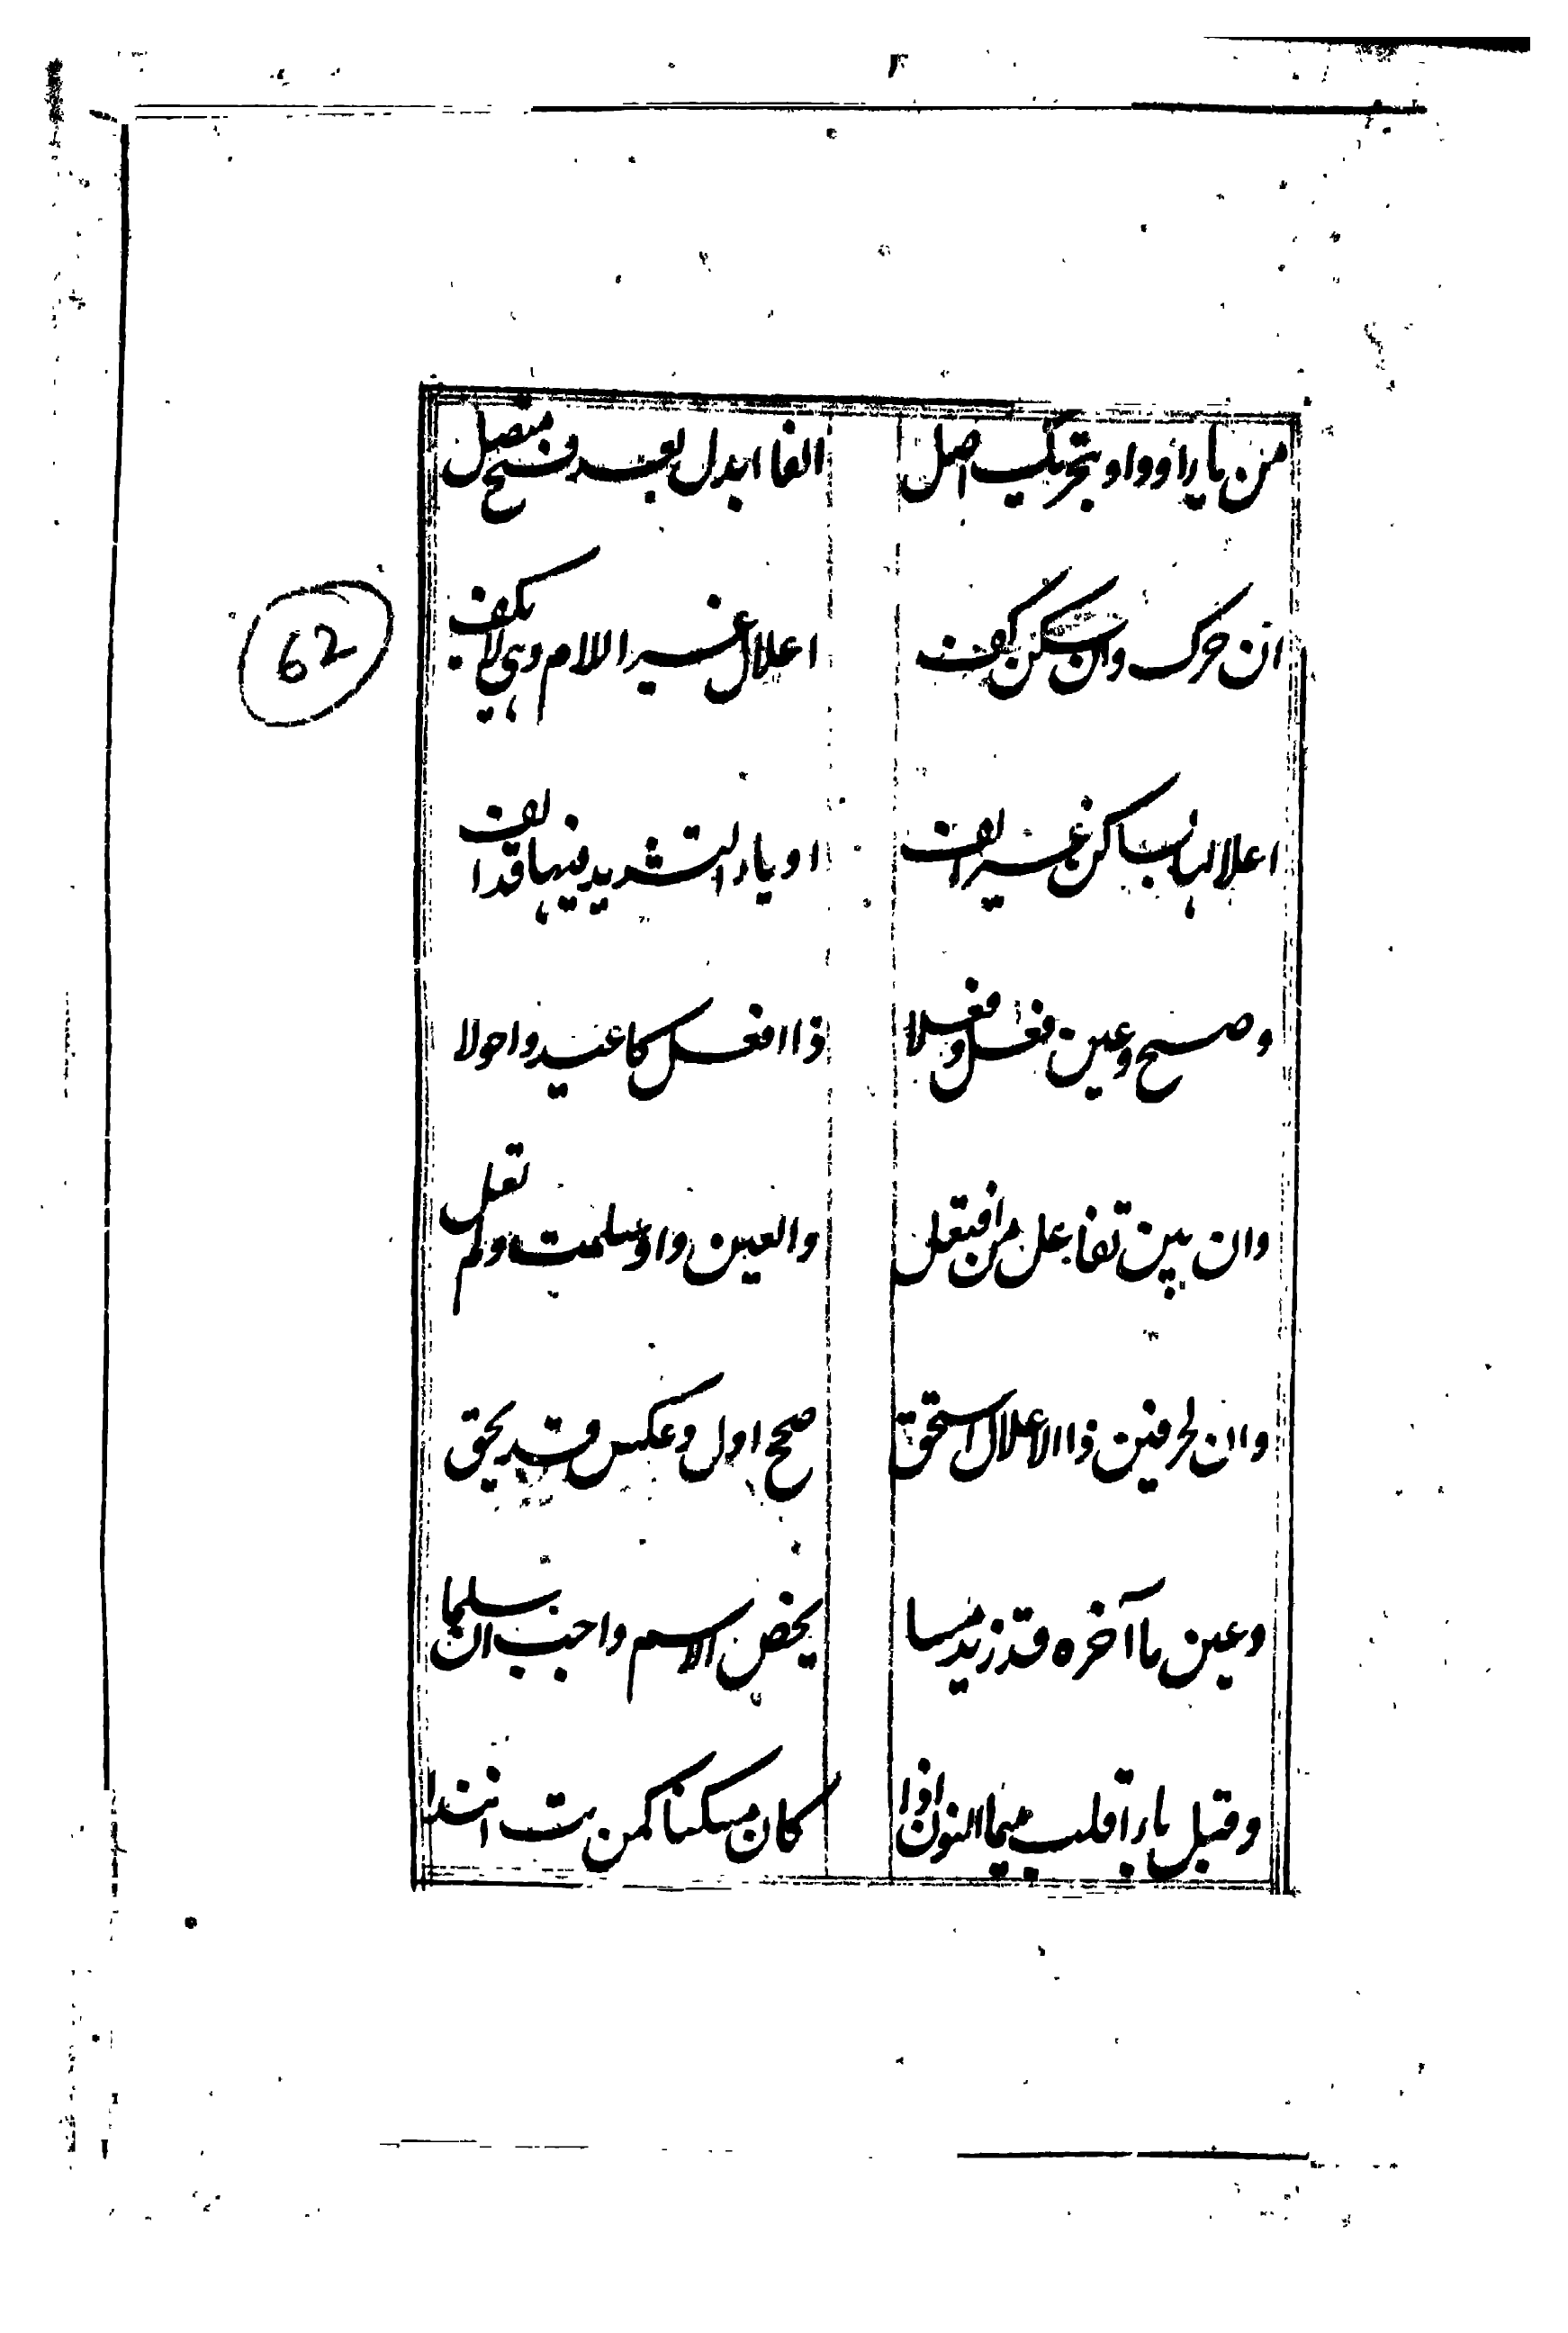 من ياء او واو بتحريك اصل الفا ابدل بعد فتح متصل
ان حرك وان سكن كف اعلال غير اللام وهي لا يكف
اعلالها بساكن غير الف او ياء التشديد فيها قد الف
وصح عين فعل وفعلا ذا افعل كاغيد واحولا
وان يبن تفاعل من افتعل والعين واو سلمت ولم تعل
وان لحرفين ذا الاعلال استحق صحح اول وعكس قد يحق
وعين ما آخره قد زيد مما يخص الاسم واجب ان يسلما
وقبل باء اقلب ميما النون اذا كان مسكنا كمن بت انبذا
62